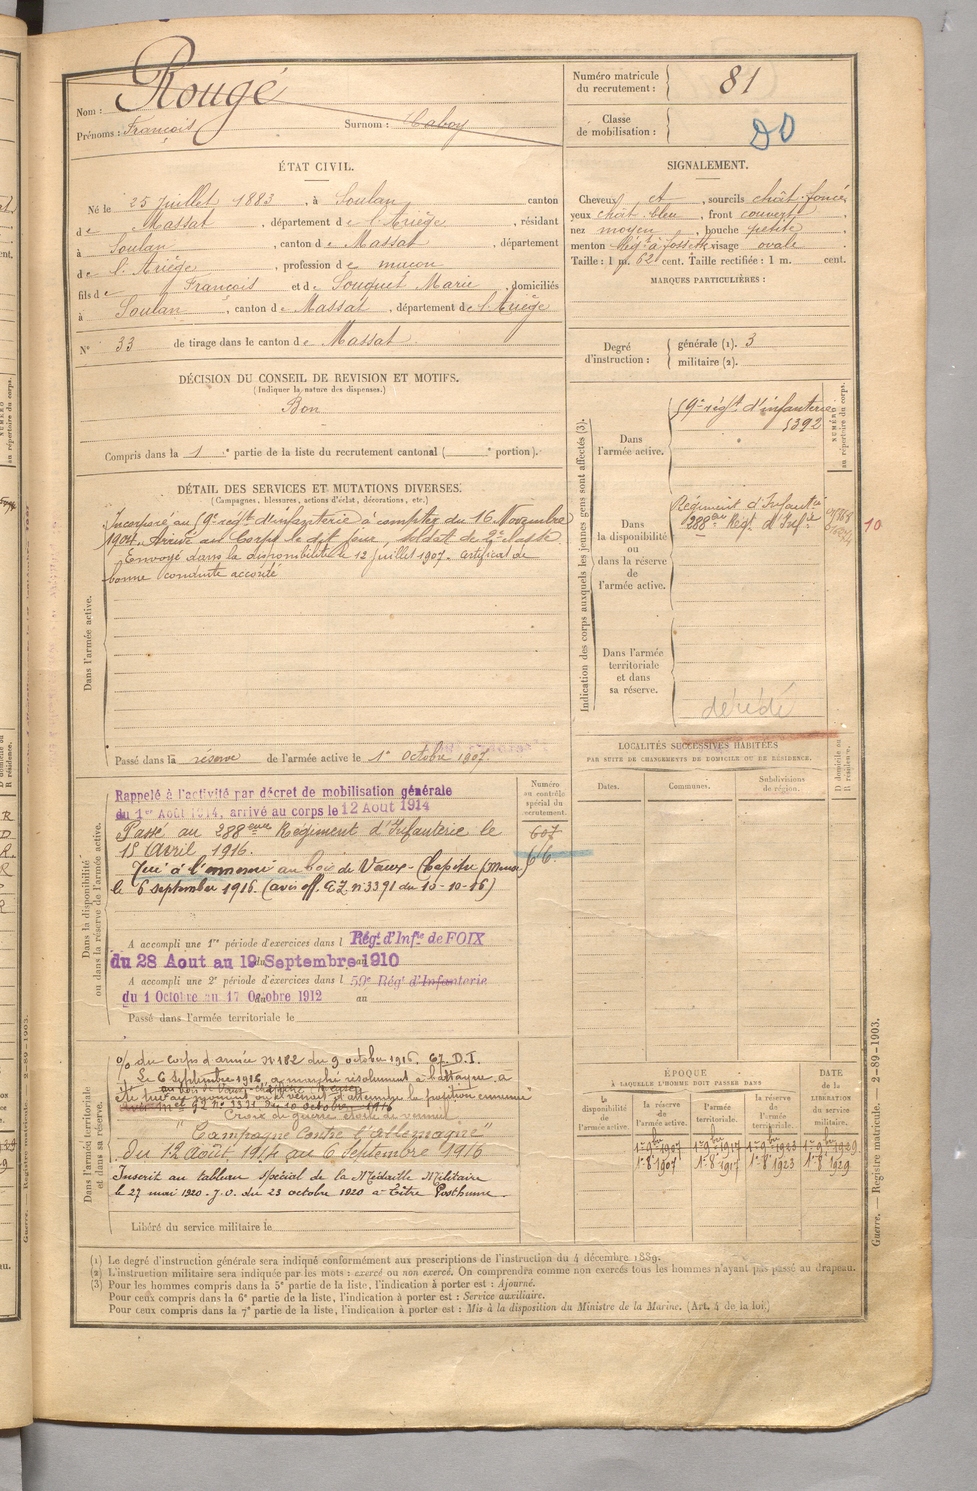 Nom : Rougé
Prénoms : François Surnom : Caboy
Numéro matricule du recrutement : 81
Classe de mobilisation :
ÉTAT CIVIL.
Né le 25 juillet 1883, à Soulan canton
de Massat, département de l'Ariège, résidant
à Soulan, canton de Massat, département
de l'Ariège, profession de maçon
fils de François et de Souquet Marie, domiciliés
à Soulan, canton de Massat, département de l'Ariège
N° 33 de tirage dans le canton de Massat.
SIGNALEMENT.
Cheveux et, sourcils chât. foncé,
yeux chât. bleu, front couvert,
nez moyen, bouche petite,
menton à fossette visage ovale.
Taille : 1 m. 62 cent. Taille rectifiée : 1 m. cent.
MARQUES PARTICULIÈRES :
Degré d'instruction : générale (1). 3
militaire (2).
DÉCISION DU CONSEIL DE REVISION ET MOTIFS.
(Indiquer la nature des dispenses.)
Bon
Compris dans la 1e partie de la liste du recrutement cantonal ( e portion).
DÉTAIL DES SERVICES ET MUTATIONS DIVERSES.
(Campagnes, blessures, actions d'éclat, décorations, etc.)
Dans l'armée active.
Incorporé au 59e régt d'infanterie à compter du 16 Novembre
1904. Arrivé au Corps le dit jour, soldat de 2e classe
Envoyé dans la disponibilité le 12 Juillet 1907. Certificat de
bonne conduite accordé
Passé dans la réserve de l'armée active le 1er Octobre 1907.
Indication des corps auxquels les jeunes gens sont affectés (3).
NUMÉRO au répertoire du corps.
Dans l'armée active.
59e régt d'infanterie
5392
Dans la disponibilité ou dans la réserve de l'armée active.
Régiment d'Infanterie
288e Régt d'Infie
10
Dans l'armée territoriale et dans sa réserve.
décédé
LOCALITÉS SUCCESSIVES HABITÉES
PAR SUITE DE CHANGEMENTS DE DOMICILE OU DE RÉSIDENCE.
Dates. Communes. Subdivisions de région. D domicile ou R résidence.
Dans la disponibilité ou dans la réserve de l'armée active.
Numéro au contrôle spécial du recrutement.
607
66
Rappelé à l'activité par décret de mobilisation générale
du 1er Août 1914, arrivé au corps le 12 Aout 1914
Passé au 288ème Régiment d'Infanterie le
15 Avril 1916.
Tué à l'ennemi au bois de Vaux-Chapitre (Meuse)
le 6 septembre 1916. (avis off. A.Z. n°3391 du 10-10-16)
A accompli une 1re période d'exercices dans l Régt d'Infie de FOIX
du 28 Aout au 19 Septembre 1910
A accompli une 2e période d'exercices dans l 59e Régt d'Infanterie
du 1 Octobre au 17 Octobre 1912 au
Passé dans l'armée territoriale le
Dans l'armée territoriale et dans sa réserve.
du corps d'armée n°182 du 9 octobre 1916. 67. D.I.
Le 6 Septembre 1916, a marché résolument à l'attaque. a
au bois de Vaux-Chapitre Meuse
été tué au moment où il venait d'atteindre la position ennemie
Croix de guerre étoile de vermeil
"Campagne contre l'Allemagne"
Du 12 Août 1914 au 6 Septembre 1916
Inscrit au tableau spécial de la Médaille Militaire
le 27 mai 1920. J.O. du 23 octobre 1920 à Titre Posthume.
Libéré du service militaire le
ÉPOQUE
À LAQUELLE L'HOMME DOIT PASSER DANS
la disponibilité de l'armée active. la réserve de l'armée active. l'armée territoriale. la réserve de l'armée territoriale.
DATE de la LIBÉRATION du service militaire.
1er 9bre 1907 1er 9 1917 1er 9bre 1923 1er 9bre 1929
1er 8bre 1907 1er 8 1917 1er 8 1923 1er 8 1929
(1) Le degré d'instruction générale sera indiqué conformément aux prescriptions de l'instruction du 4 décembre 1889.
(2) L'instruction militaire sera indiquée par les mots : exercé ou non exercé. On comprendra comme non exercés tous les hommes n'ayant pas passé au drapeau.
(3) Pour les hommes compris dans la 5e partie de la liste, l'indication à porter est : Ajourné.
Pour ceux compris dans la 6e partie de la liste, l'indication à porter est : Service auxiliaire.
Pour ceux compris dans la 7e partie de la liste, l'indication à porter est : Mis à la disposition du Ministre de la Marine. (Art. 4 de la loi.)
Guerre. — Registre matricule. — 2-89-1903.